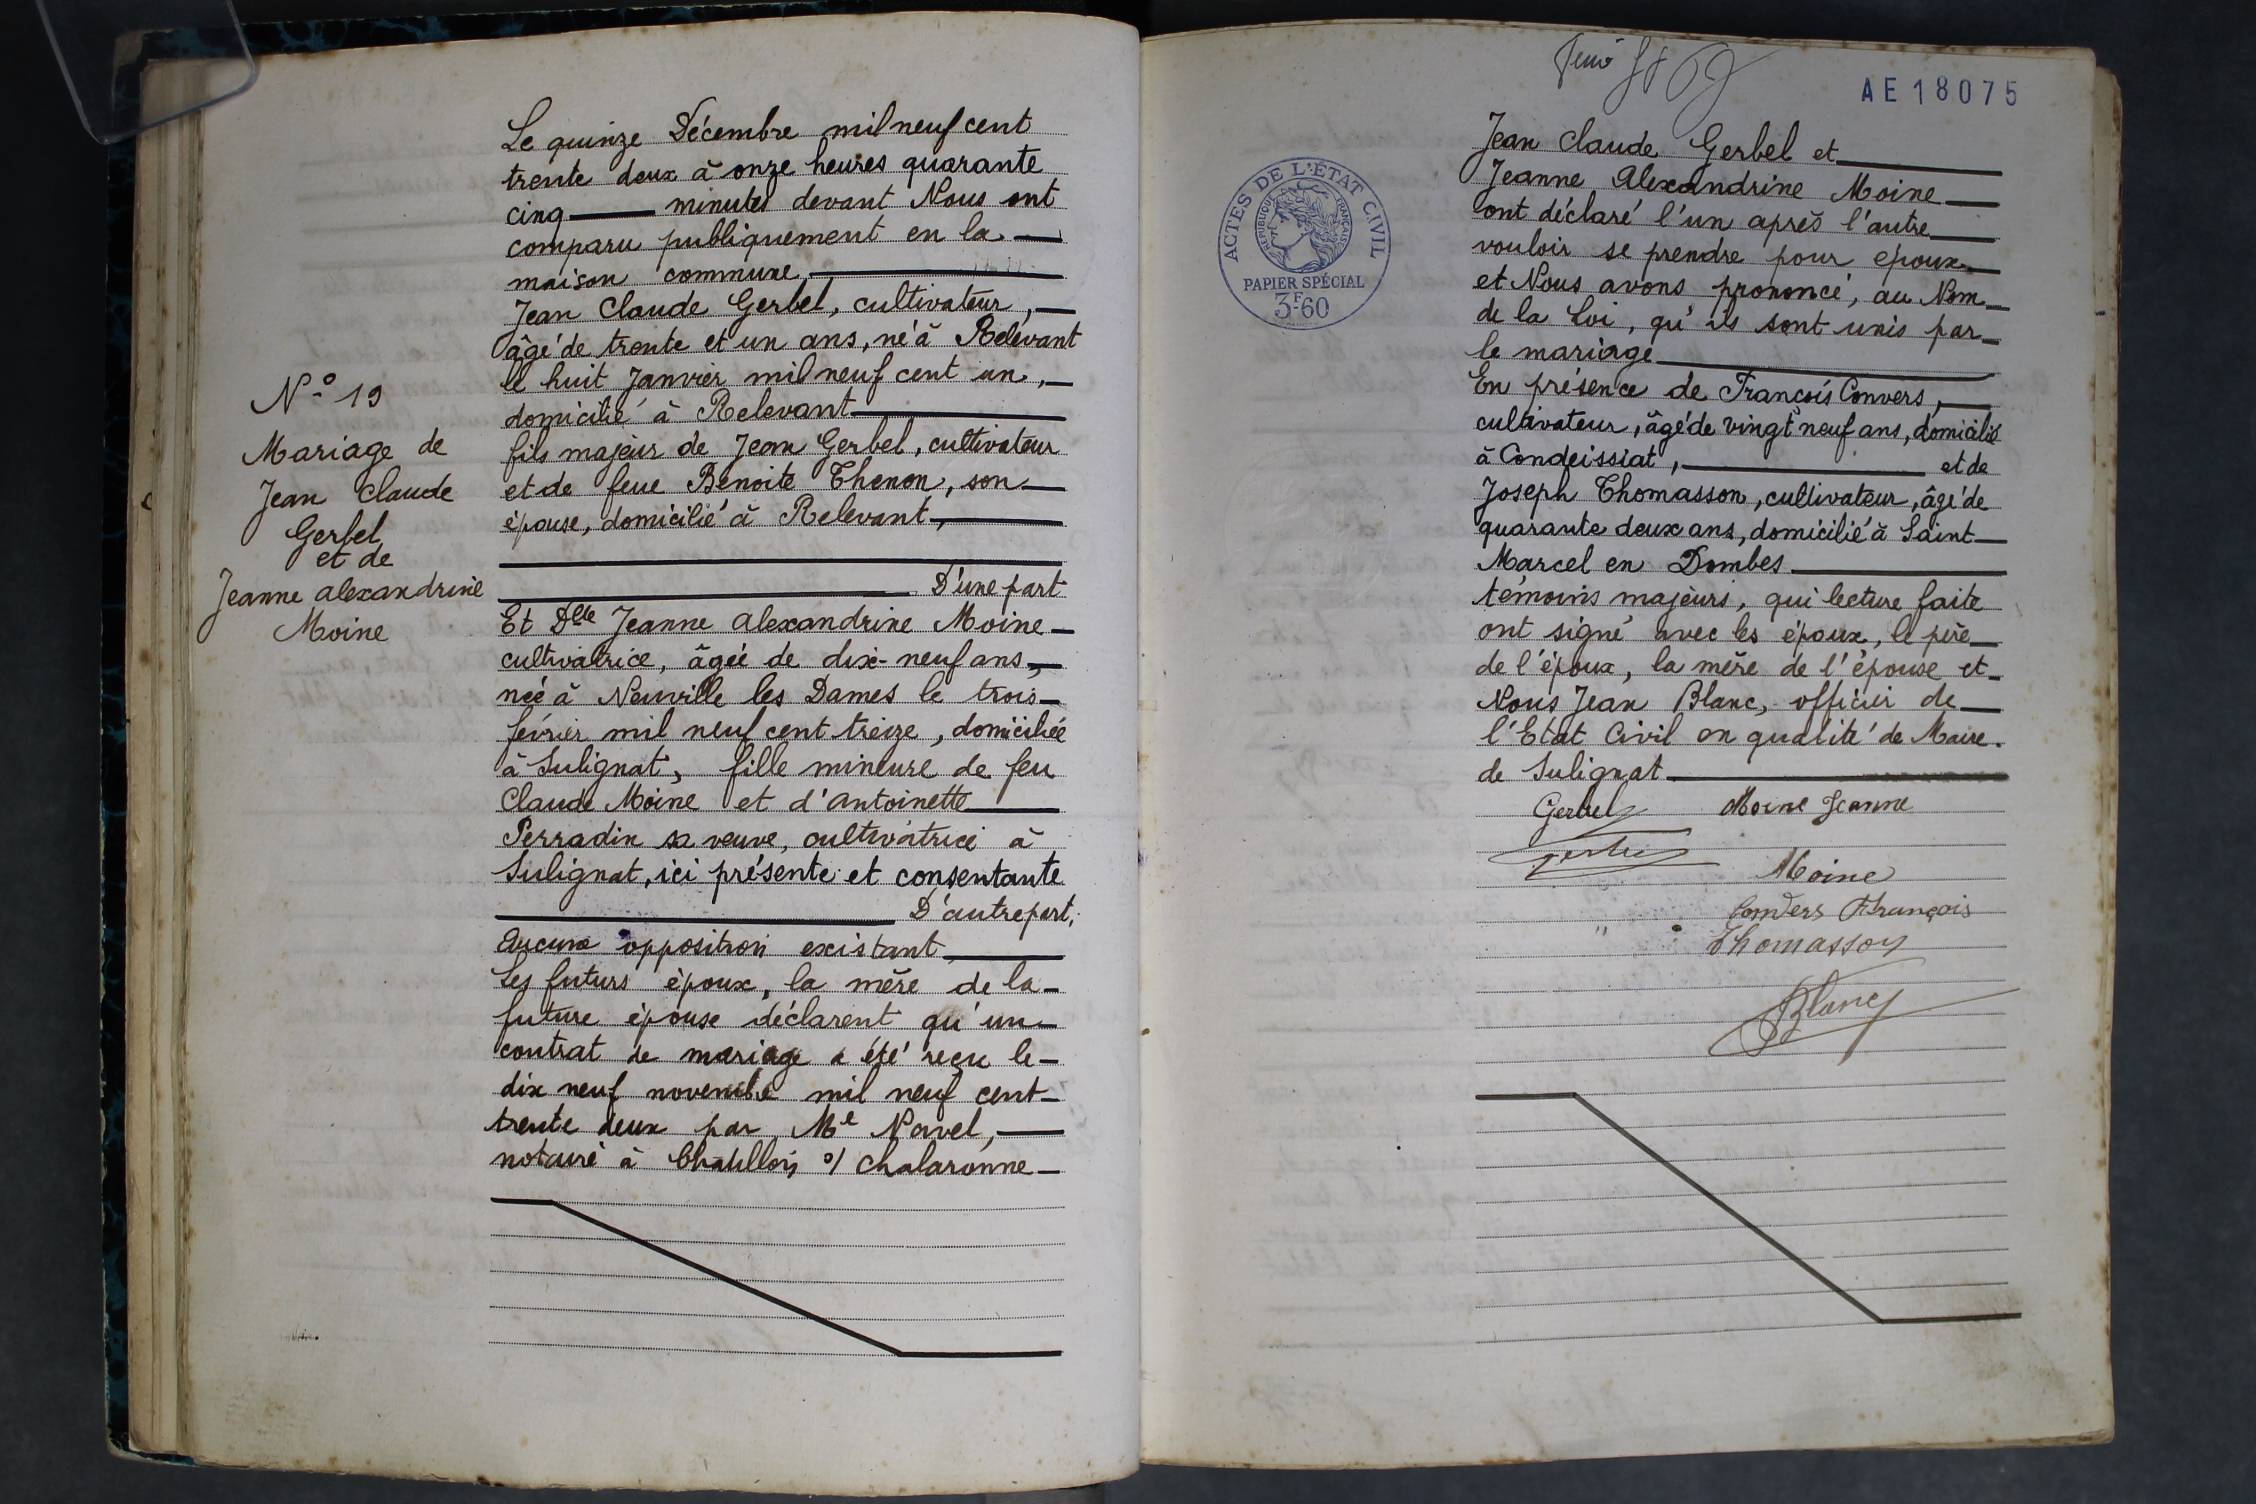 N° 19
Mariage de
Jean Claude
Gerbel
et de
Jeanne alexandrine
Moine
Le quinze Décembre mil neuf cent
trente deux à onze heures quarante
cinq minutes devant Nous ont
comparu publiquement en la
maison commune
Jean Claude Gerbel, cultivateur,
âgé de trente et un ans, né à Relevant
le huit Janvier mil neuf cent un,
domicilié à Relevant
fils majeur de Jean Gerbel, cultivateur
et de feue Benoite Thenon, son
épouse, domicilié à Relevant,
D'une part
Et Dlle Jeanne alexandrine Moine
cultivatrice, âgée de dix-neuf ans,
née à Neuville les Dames le trois
février mil neuf cent treize, domiciliée
à Sulignat, fille mineure de feu
Claude Moine et d'antoinette
Perradin sa veuve, cultivatrice à
Sulignat, ici présente et consentante
D'autre part,
Aucune opposition existant
Les futurs époux, la mère de la
future épouse déclarent qu'un
contrat de mariage a été reçu le
dix neuf novembre mil neuf cent
trente deux par Me Navel,
notaire à Chatillon s/ chalaronne
AE18075
ACTES DE L'ÉTAT CIVIL
RÉPUBLIQUE FRANÇAISE
PAPIER SPÉCIAL
3F.60
Jean Claude Gerbel et
Jeanne Alexandrine Moine
ont déclaré l'un après l'autre
vouloir se prendre pour époux
et Nous avons prononcé, au Nom
de la Loi, qu'ils sont unis par
le mariage
En présence de François Convers,
cultivateur, âgé de vingt neuf ans, domicilié
à Condeissiat, et de
Joseph Thomasson, cultivateur, âgé de
quarante deux ans, domicilié à Saint
Marcel en Dombes
témoins majeurs, qui lecture faite
ont signé avec les époux, le père
de l'époux, la mère de l'épouse et
Nous Jean Blanc, officier de
l'Etat Civil en qualité de Maire
de Sulignat
Gerbel Moine Jeanne
Gerbel
Moine
Convers François
Thomasson
Blanc